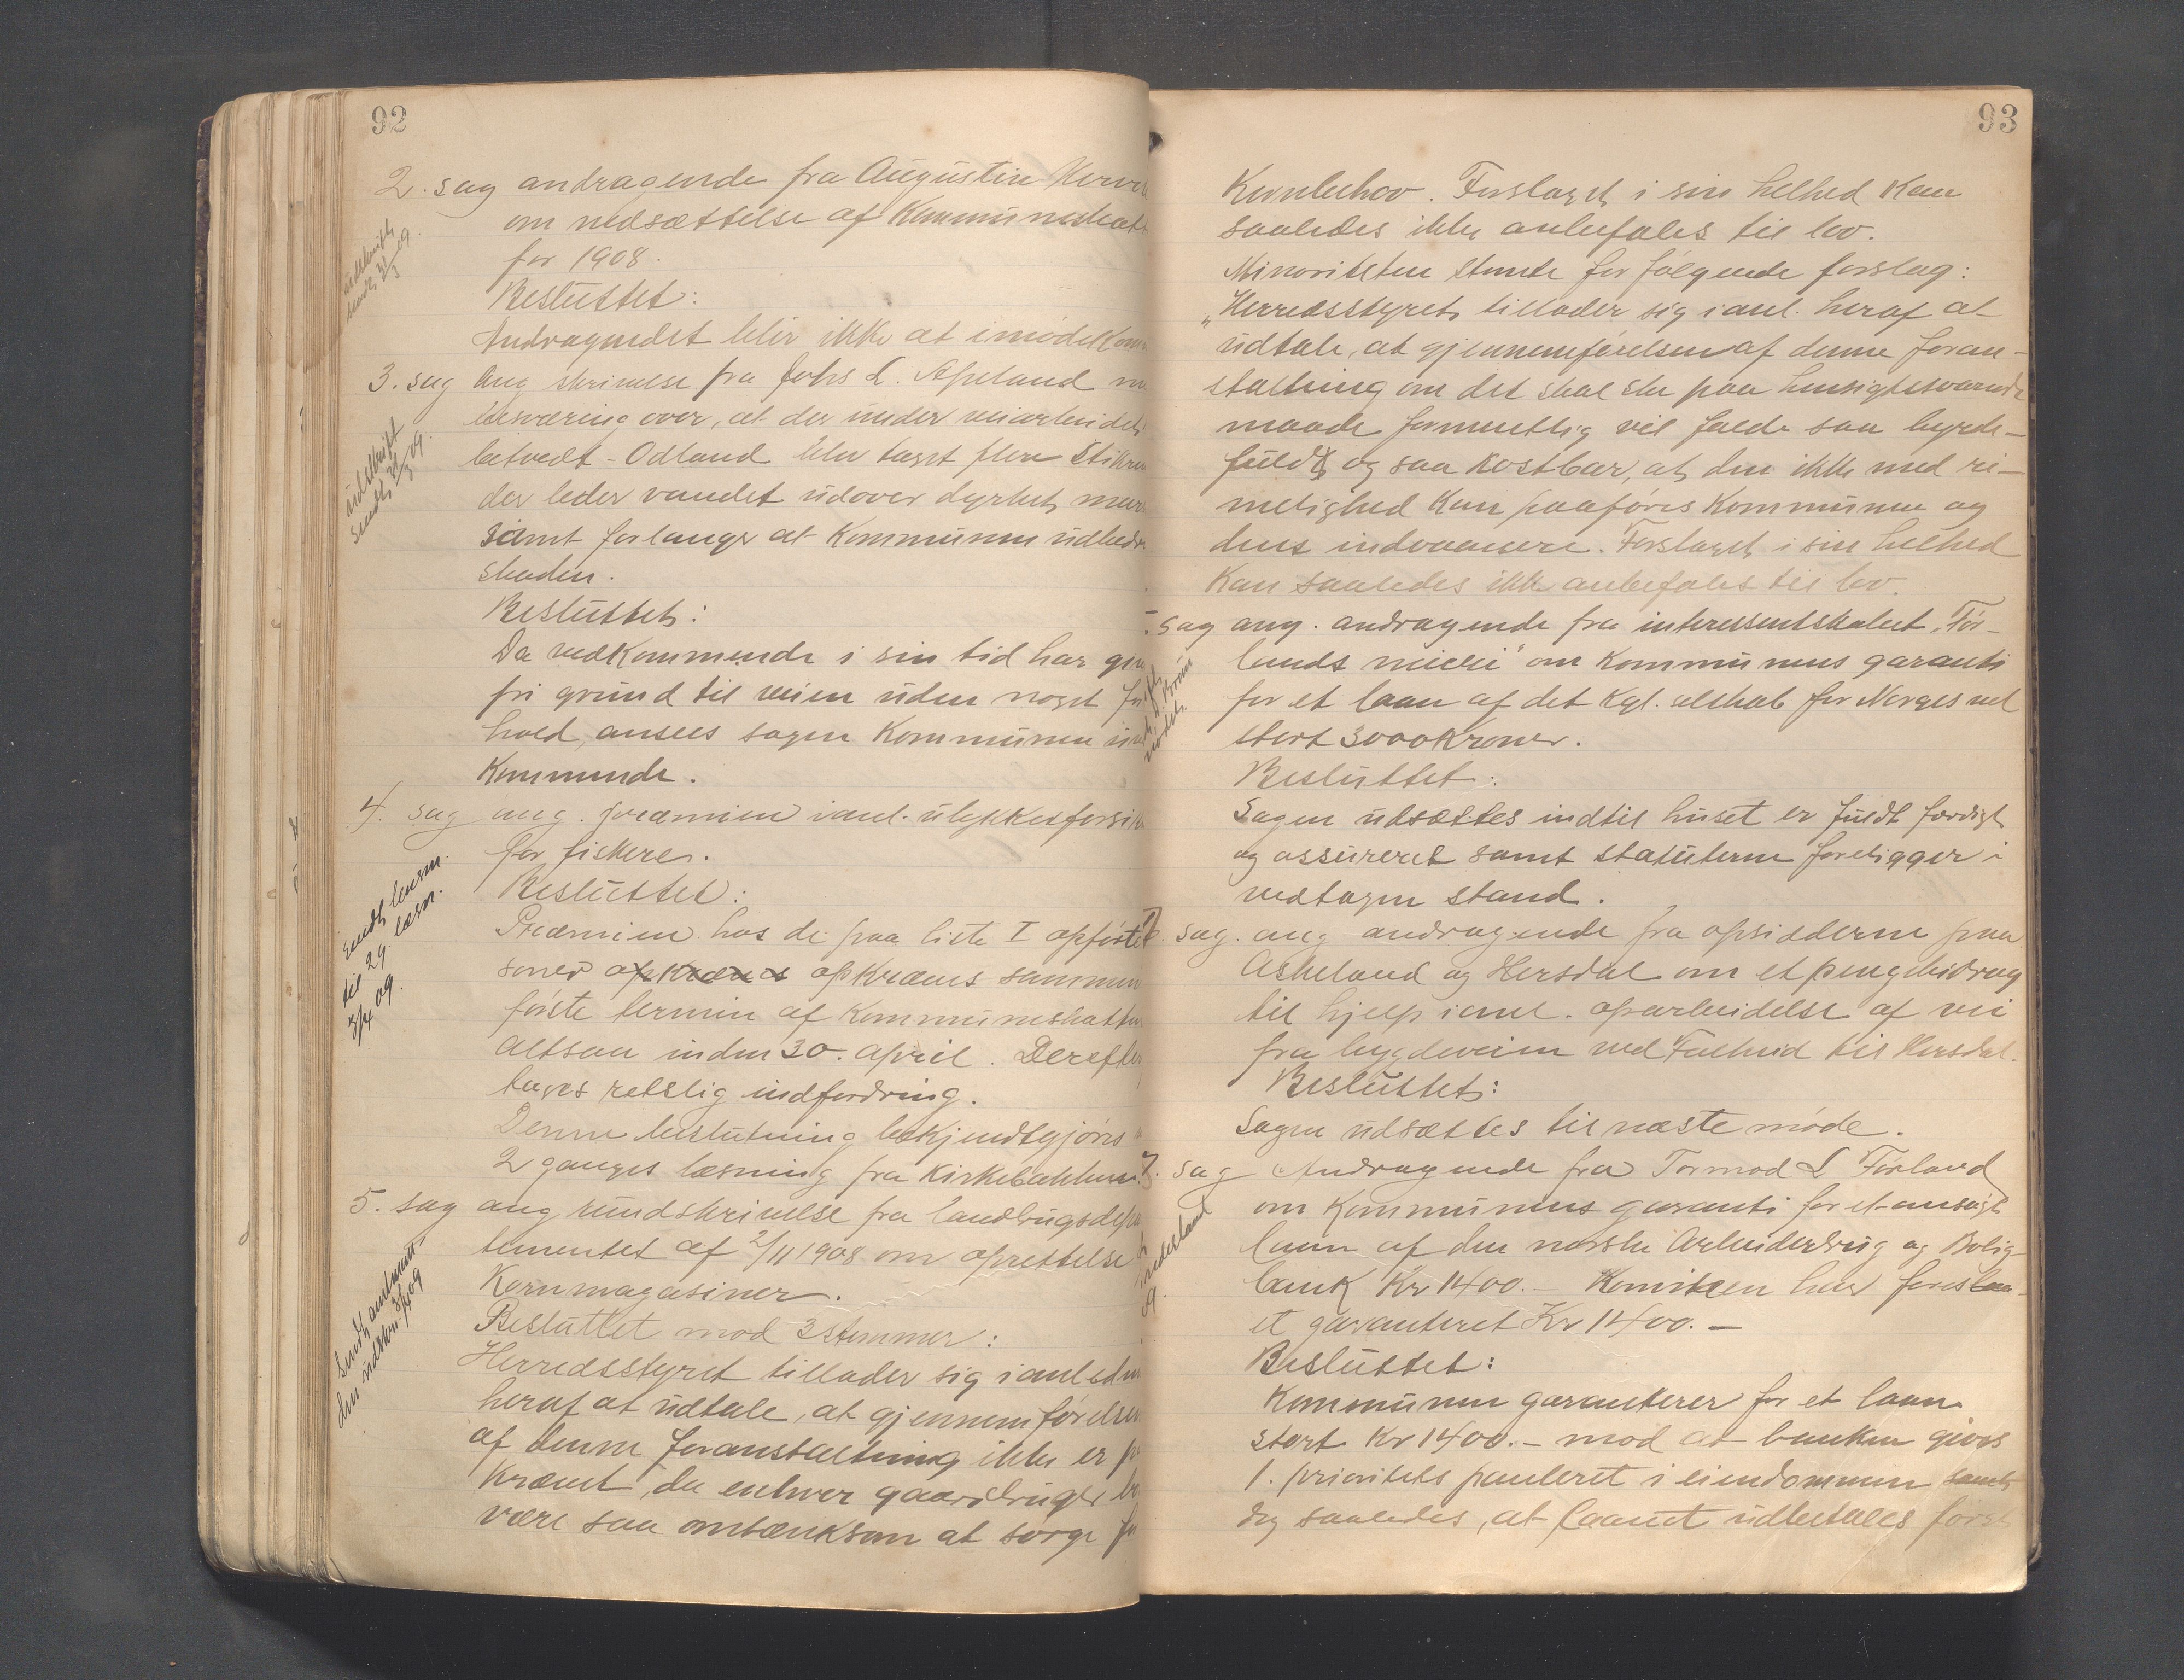 92
2. sag andragende fra Augustin
om nedsættelse af Kommuneskatt
for 1908.
Besluttet:
Andragendet blir ikke at imødekom
3. sag Ang skrivelse fra Johs L. Apeland
besværing over, at der under veiarbeidet
Odland blev taget flere Stikren
der leder vandet udover dyrket mark
samt forlanger at Kommunen udbedre
skaden.
Besluttet:
Da vedkommende i sin tid har give
fri grund til veien uden noget for
hold, ansees sagen Kommunen uved
Kommende.
4. sag ang. præmien i anl. ulykkesforsik
for fiskere.
Besluttet:
Præmien hos de paa liste I opførte
soner opkræves sammen
første termin af Kommuneskatten
altsaa inden 30. april. Derefter
tages retslig indfordring.
Denne beslutning bekjendtgjøres
2 ganges læsning fra Kirkebakken.
5. sag ang rundskrivelse fra landbrugsdepar
tementet af 2/11 1908 om oprettelse
Kornmagasiner.
Besluttet mod 3 stemmer:
Herredsstyret tillader sig i anledn
heraf at udtale, at gjennemførelsen
af denne foranstaltning ikke er på
krævet, da enhver gaardbruger bø
være saa omtænksom at sørge for
udskrift sendt 31/3 09.
udskrift sendt 31/3 09.
sendt lensm.
til 29. læsn.
3/4 09.
Sendt amtmand
den udskr. 3/4 09
93
Kornbehov. Forslaget i sin helhed kan
saaledes ikke anbefales til lov.
Minoriteten stemte for følgende forslag:
"Herredsstyret tillader sig i anl. heraf at
udtale, at gjennemførelsen af denne foran-
staltning om det skal ske paa hensigtsvarende
maade formentlig vil falde saa byrde-
fuld og saa kostbar, at den ikke med ri-
melighed kan paaføres Kommunen og
dens indvaanere. Forslaget i sin helhed
kan saaledes ikke anbefales til lov.
sag ang. andragende fra interessentskabet "Før-
lands meieri" om Kommunens garanti
for et laan af det kgl. selskab for Norges vel
stort 3000 Kroner.
Besluttet:
Sagen udsættes indtil huset er fuldt færdigt
og assureret samt statuterne foreligger i
vedtagen stand.
sag. ang andragende fra opsidderne paa
Askeland og Hersdal om et pengebidrag
til hjelp i anl. oparbeidelse af vei
fra bygdeveien ved Falheid til Hersdal.
Besluttet:
Sagen udsættes til næste møde.
7. sag Andragende fra Tormod L Førland
om Kommunens garanti for et ansøgt
laan af den norske Arbeiderbrug og Bolig-
bank Kr 1400.- Komiteen har foreslaa-
et garanteret Kr 1400.-
Besluttet:
Kommunen garanterer for et laan
stort Kr 1400.- mod at banken gives
1. prioritets panteret i eiendommen samt
dog saaledes, at laanet udbetales først